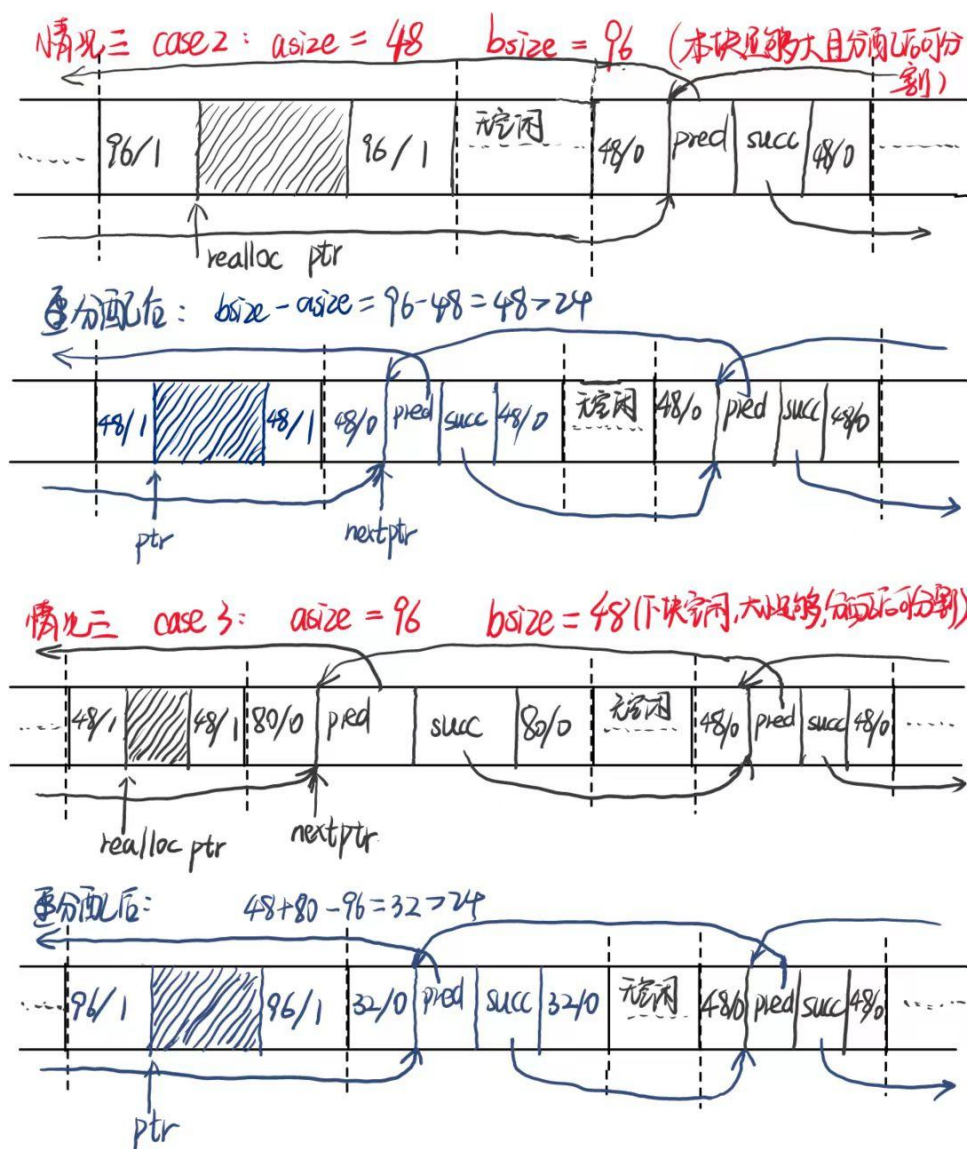 情况三 case2: asize = 48 bsize = 96 (本块足够大且分配后可分割)
...... 96/1 96/1 无空闲 48/0 pred succ 48/0 ......
realloc ptr
重分配后: bsize-asize=96-48=48>24
48/1 48/1 48/0 pred succ 48/0 无空闲 48/0 pred succ 48/0
ptr nextptr
情况三 case3: asize = 96 bsize = 48(下块空闲,大小足够,分配后可分割)
...... 48/1 48/1 80/0 pred succ 80/0 无空闲 48/0 pred succ 48/0 ......
realloc ptr nextptr
重分配后: 48+80-96=32>24
...... 96/1 96/1 32/0 pred succ 32/0 无空闲 48/0 pred succ 48/0 ......
ptr